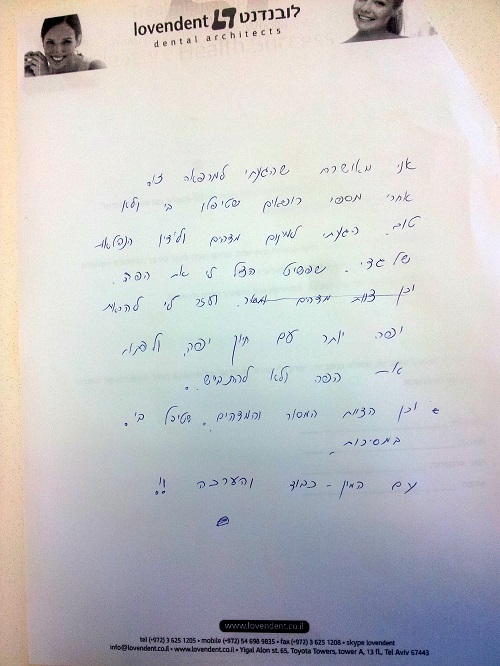 lovendent לובנדנט
dental architects
אני מאושרת שהגעתי למרפאה זו.
אחרי מספר רופאים שטיפלו בי ולא
טוב. הגעתי לאיטום מדהים ולידיו הנפלאות
של גדי. שפשוט הציל לי את הפה.
וכן צוות מדהים ומסור. ועזר לי להראות
יפה יותר עם חיוך יפה, ולפתוח
את הפה ולא להתבייש.
וכן הצוות המסור והמדהים. שטיפל בי.
במסירות.
עם המון - כבוד והערכה !!
www.lovendent.co.il
tel (+972) 3 625 1205 • mobile (+972) 54 698 9835 • fax (+972) 3 625 1208 • skype lovendent
info@lovendent.co.il • www.lovendent.co.il • Yigal Alon st. 65, Toyota Towers, tower A, 13 fl., Tel Aviv 67443